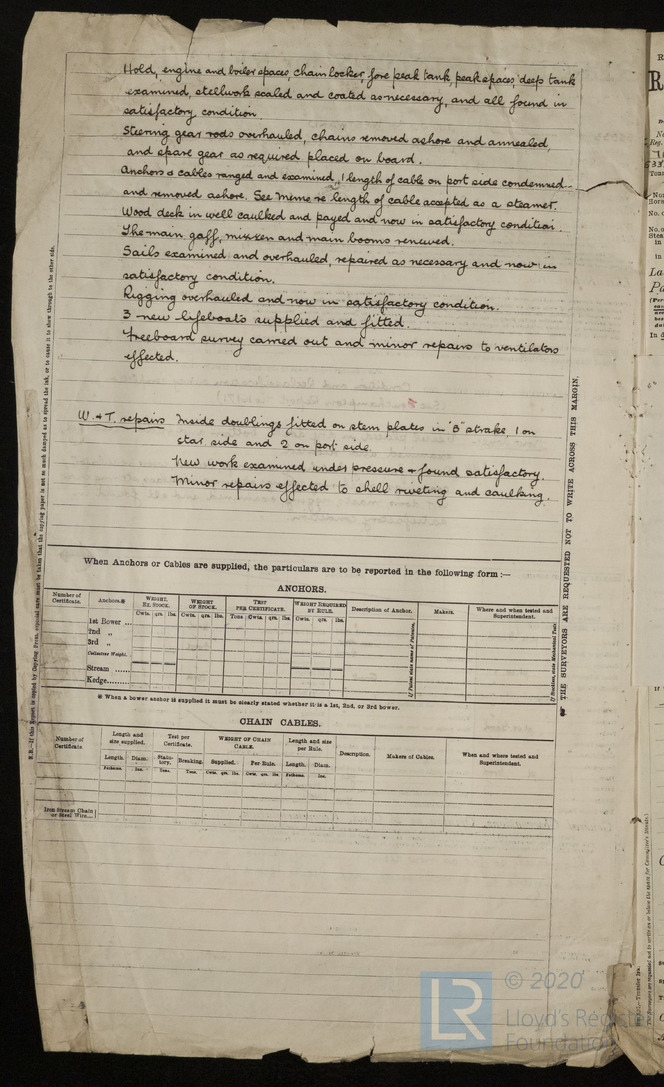 Hold, engine and boiler spaces, chain locker, fore peak tank, peak spaces, deep tank
examined, steelwork scaled and coated as necessary, and all found in
satisfactory condition
Steering gear rods overhauled, chains removed ashore and annealed,
and spare gear as required placed on board.
Anchors & cables ranged and examined, 1 length of cable on port side condemned
and removed ashore. See memo re length of cable accepted as a steamer.
Wood deck in well caulked and payed and now in satisfactory condition.
The main gaff, mizzen and main booms renewed.
Sails examined and overhauled, repaired as necessary and now in
satisfactory condition.
Rigging overhauled and now in satisfactory condition.
3 new lifeboats supplied and fitted.
Freeboard survey carried out and minor repairs to ventilators
effected.
W. & T. repairs Inside doublings fitted on stem plates in "B" strake, 1 on
star. side and 2 on port side.
New work examined under pressure & found satisfactory.
Minor repairs effected to shell riveting and caulking.
When Anchors or Cables are supplied, the particulars are to be reported in the following form :—
ANCHORS.
Number of Certificate. Anchors.* WEIGHT. EX. STOCK. WEIGHT OF STOCK. TEST PER CERTIFICATE. WEIGHT REQUIRED BY RULE. Description of Anchor. Makers. Where and when tested and Superintendent.
Cwts. qrs. lbs. Cwts. qrs. lbs. Tons Cwts. qrs. lbs. Cwts. qrs. lbs.
1st Bower ...
2nd „
3rd „
Collective Weight.
Stream ......
Kedge.........
* When a bower anchor is supplied it must be clearly stated whether it is a 1st, 2nd, or 3rd bower.
CHAIN CABLES.
Number of Certificate Length and size supplied. Test per Certificate. WEIGHT OF CHAIN CABLE. Length and size per Rule. Description. Makers of Cables. When and where tested and Superintendent.
Length. Diam. Statutory. Breaking. Supplied. Per Rule. Length. Diam.
Fathoms. Ins. Tons. Tons. Cwts. qrs. lbs. Cwts. qrs. lbs. Fathoms. Ins.
Iron Stream Chain or Steel Wire...
THE SURVEYORS ARE REQUESTED NOT TO WRITE ACROSS THIS MARGIN.
LR
© 2020
Lloyd's Register
Foundation